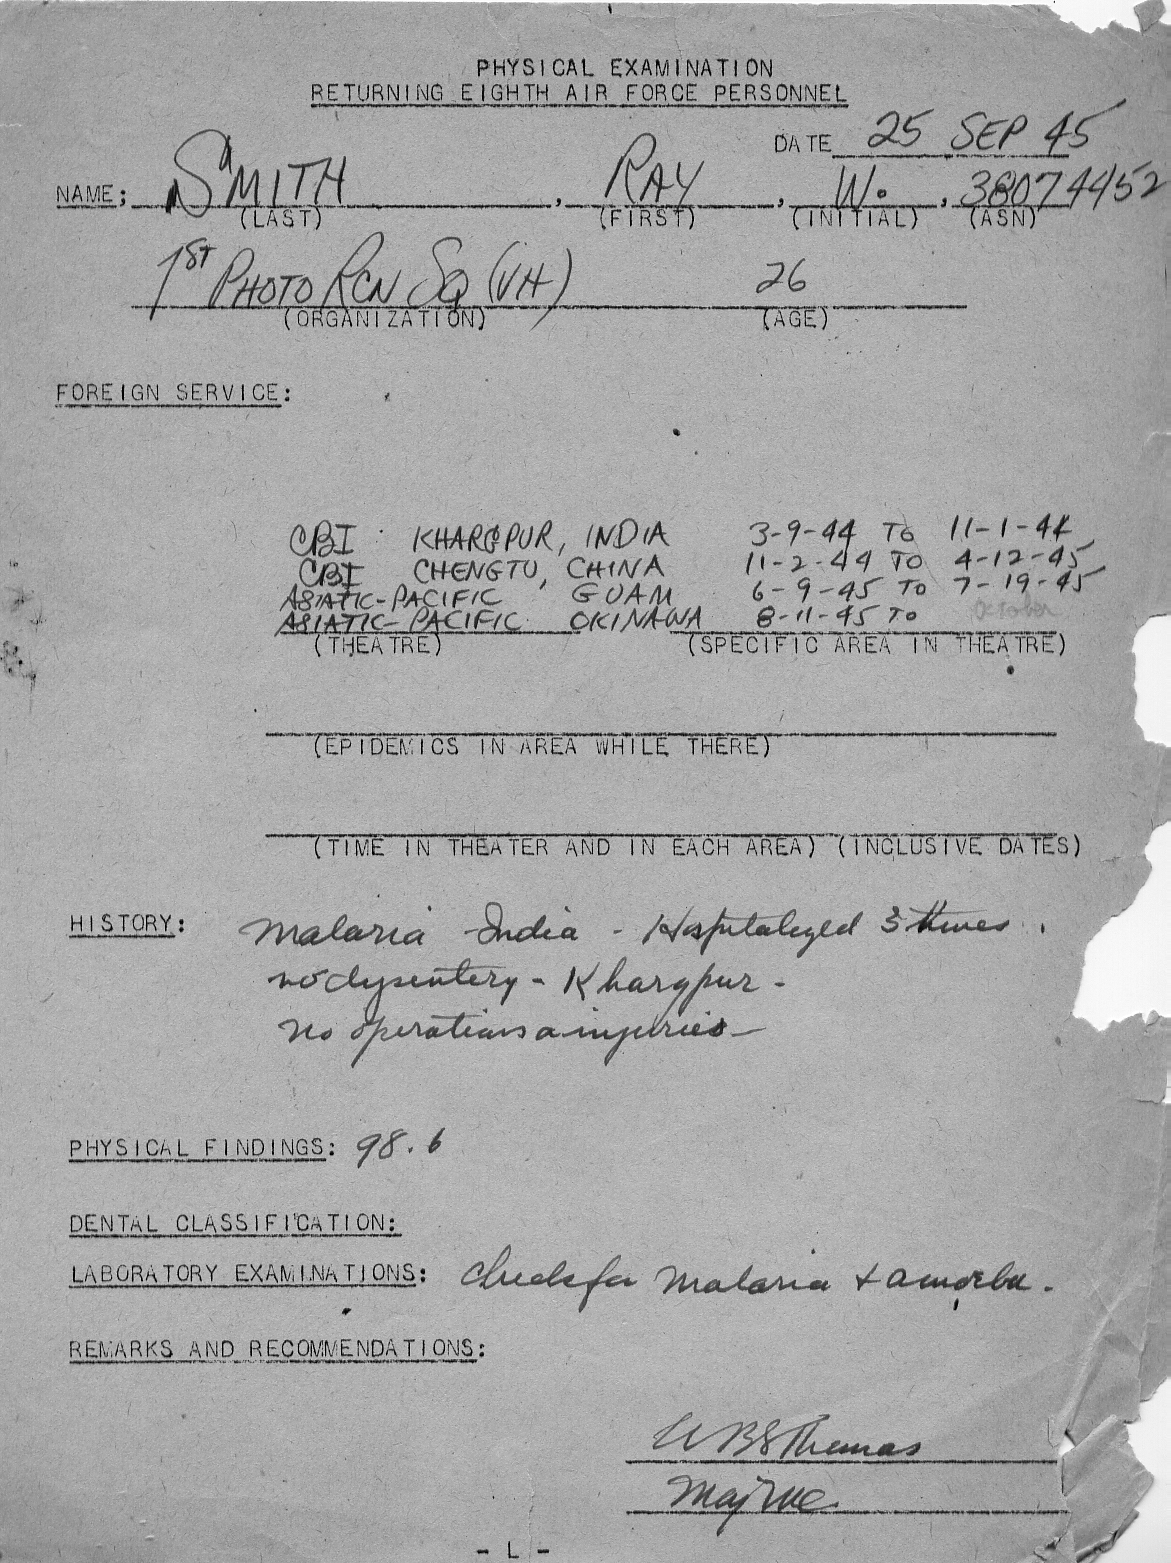 PHYSICAL EXAMINATION
RETURNING EIGHTH AIR FORCE PERSONNEL
DATE 25 SEP 45
NAME; SMITH, RAY, W., 38074452
(LAST) (FIRST) (INITIAL) (ASN)
1ST PHOTO RCN SQ (VH) 26
(ORGANIZATION) (AGE)
FOREIGN SERVICE:
CBI KHARGPUR, INDIA 3-9-44 TO 11-1-44
CBI CHENGTU, CHINA 11-2-44 TO 4-12-45
ASIATIC-PACIFIC GUAM 6-9-45 TO 7-19-45
ASIATIC-PACIFIC OKINAWA 8-11-45 TO October
(THEATRE) (SPECIFIC AREA IN THEATRE)
(EPIDEMICS IN AREA WHILE THERE)
(TIME IN THEATER AND IN EACH AREA) (INCLUSIVE DATES)
HISTORY: Malaria - India - Hospitalized 3 times.
no dysentery - Khargpur -
No operations or injuries -
PHYSICAL FINDINGS: 98.6
DENTAL CLASSIFICATION:
LABORATORY EXAMINATIONS: Check for Malaria + amoeba.
REMARKS AND RECOMMENDATIONS:
WBSThomas
Maj MC
- L -